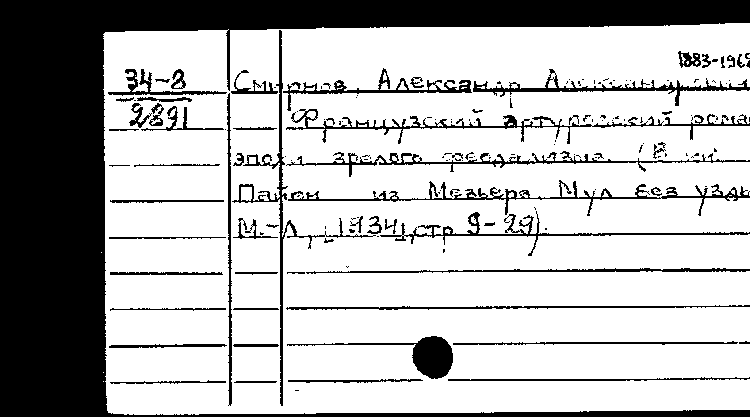 1883-1968
34-8 Смирнов, Александр Александрович
2891 Французский артуровский рома
эпохи зрелого феодализма. (В кн.
Пайен из Мезьера. Мул без узды
М.-Л., [1934], стр 9-29).